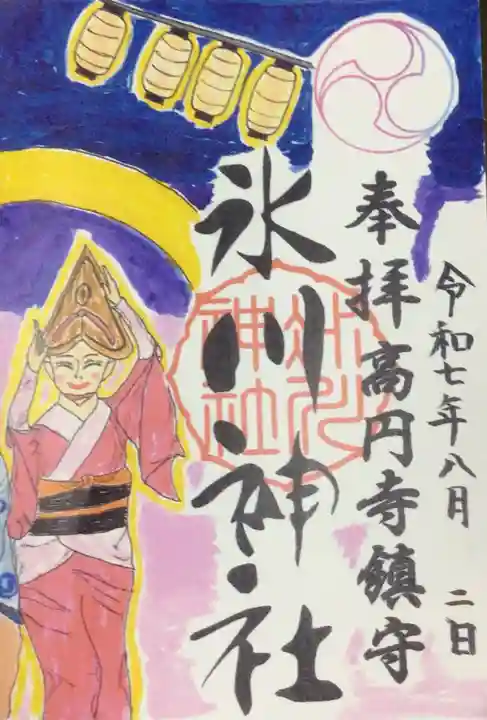 令和七年八月 二日
奉拝高円寺鎮守
氷川神社
氷川
神社